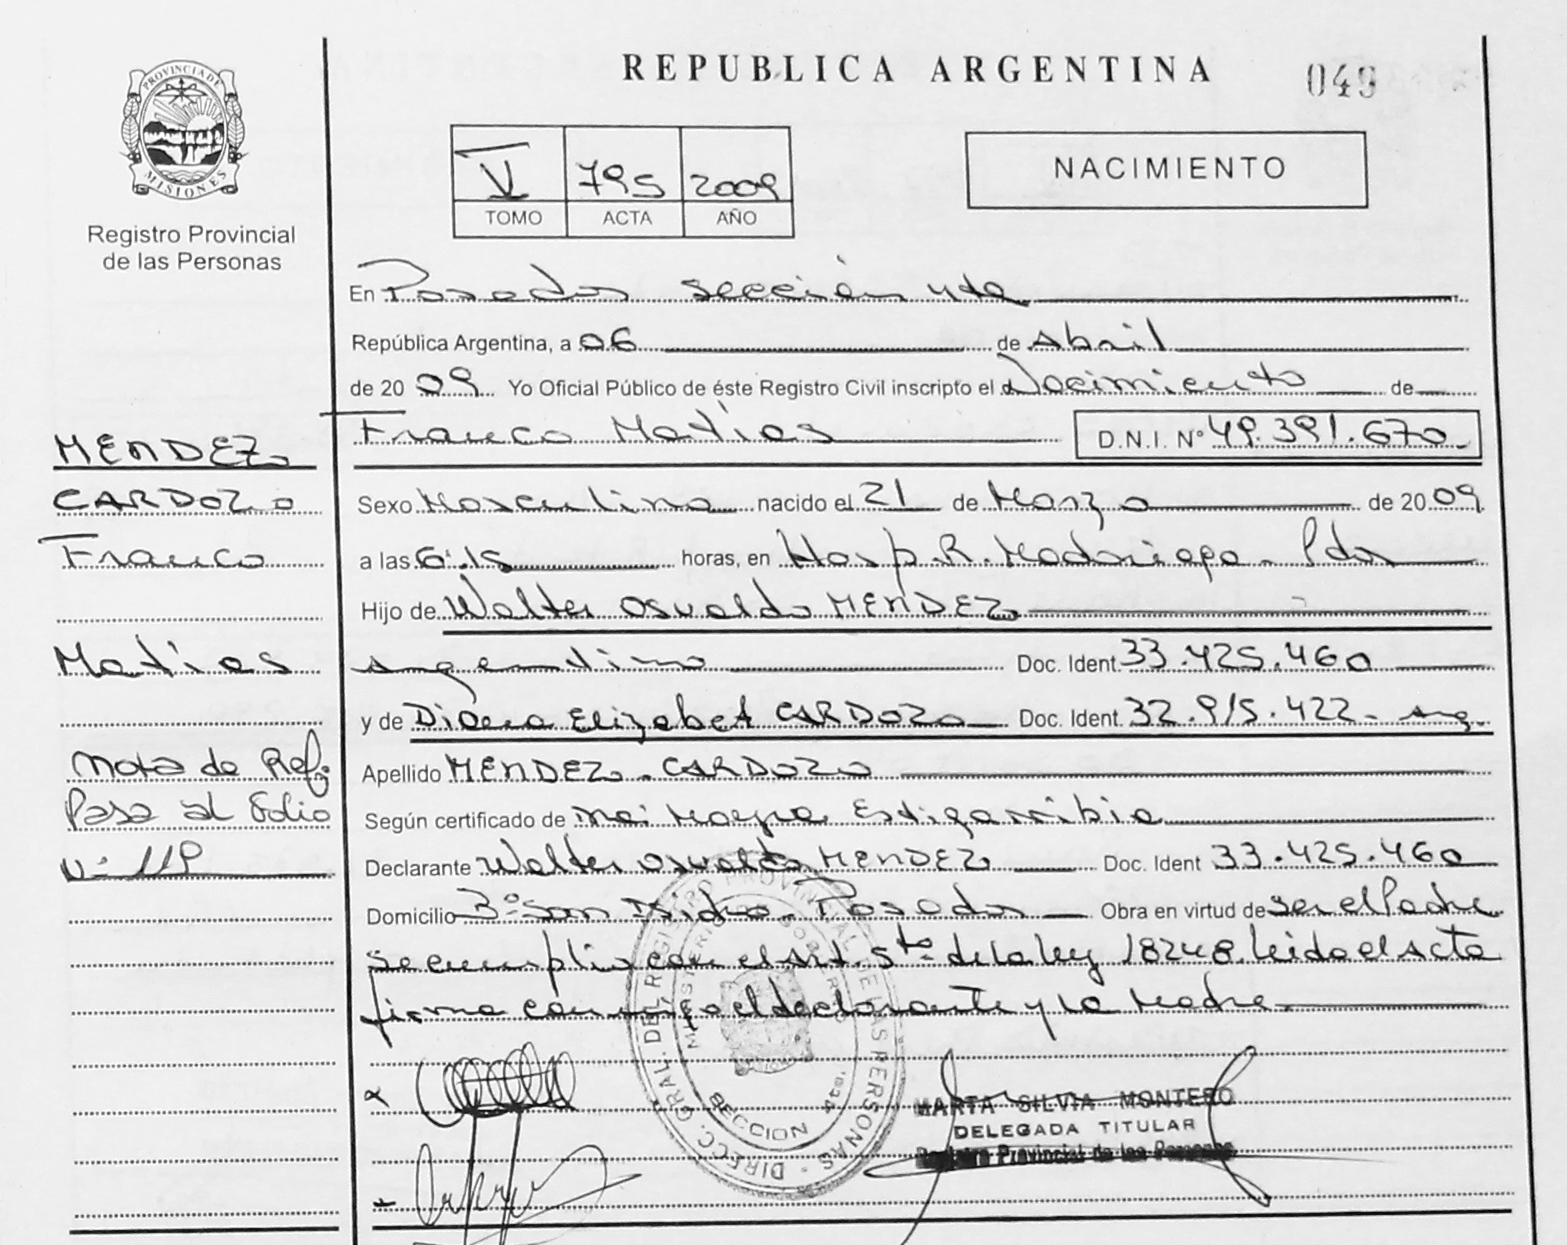 REPUBLICA ARGENTINA
049
PROVINCIA DE
MISIONES
Registro Provincial
de las Personas
V 795 2009
TOMO ACTA AÑO
NACIMIENTO
En Posadas sección 4ta
República Argentina, a 06 de Abril
de 2009 Yo Oficial Público de éste Registro Civil inscripto el Nacimiento de
Franco Matías D.N.I. Nº 49.391.670
MENDEZ
CARDOZO
Franco
Matías
Nota de Ref.
Pasa al Folio
Nº 119
Sexo Masculino nacido el 21 de Marzo de 2009
a las 6:15 horas, en Hosp. R. Madariaga - Pdas
Hijo de Walter Osvaldo MENDEZ
Argentino Doc. Ident 33.425.460
y de Diana Elizabet CARDOZO Doc. Ident. 32.915.422 - Arg.
Apellido MENDEZ - CARDOZO
Según certificado de Mayra Estigarribia
Declarante Walter Osvaldo MENDEZ Doc. Ident 33.425.460
Domicilio Bº San Isidro - Posadas Obra en virtud de ser el Padre
se cumplió con el Art. 5to de la ley 18248. leida el Acta
firma conmigo el declarante y la Madre.
DIRECC. GRAL. DEL REGISTRO PROVINCIAL DE LAS PERSONAS
MINISTERIO DE GOBIERNO
SECCION 4ta.
MARTA SILVIA MONTERO
DELEGADA TITULAR
Registro Provincial de las Personas